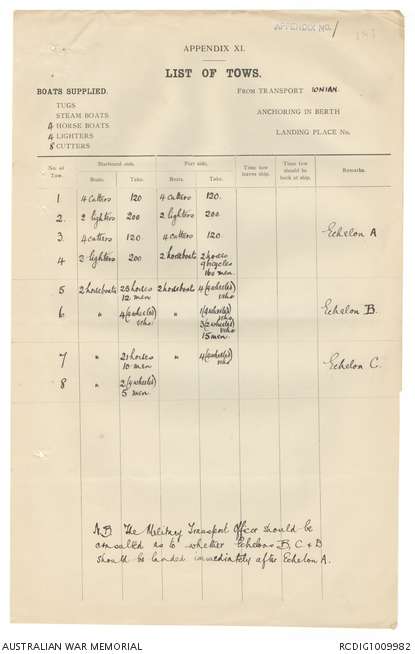 APPENDIX NO. 1
184
APPENDIX XI.
LIST OF TOWS.
BOATS SUPPLIED.
FROM TRANSPORT IONIAN.
TUGS
STEAM BOATS
4 HORSE BOATS
4 LIGHTERS
8 CUTTERS
ANCHORING IN BERTH
LANDING PLACE No.
No. of Tow. Starboard side. Port side. Time tow leaves ship. Time tow should be back at ship. Remarks.
Boats. Take. Boats. Take.
1 4 Cutters 120 4 Cutters 120.
2. 2 lighters 200 2 lighters 200
3. 4 Cutters 120. 4 Cutters 120. Echelon A
4 2 lighters 200 2 horseboats 2 horses
9 bicycles
160 men.
5 2 horseboats 23 horses 2 horseboats 4 (4 wheeled)
12 men vehs
6 " 4 (4 wheeled) " 1 (4 wheeled) Echelon B.
vehs. veh
3 (2 wheeled)
vehs
15 men.
7 " 21 horses " 4 (4 wheeled) Echelon C.
10 men vehs
8 " 2 (4 wheeled)
5 men.
N.B. The Military Transport Officer should be
consulted as to whether Echelons B, C & D
should be landed immediately after Echelon A.
AUSTRALIAN WAR MEMORIAL
RCDIG1009982